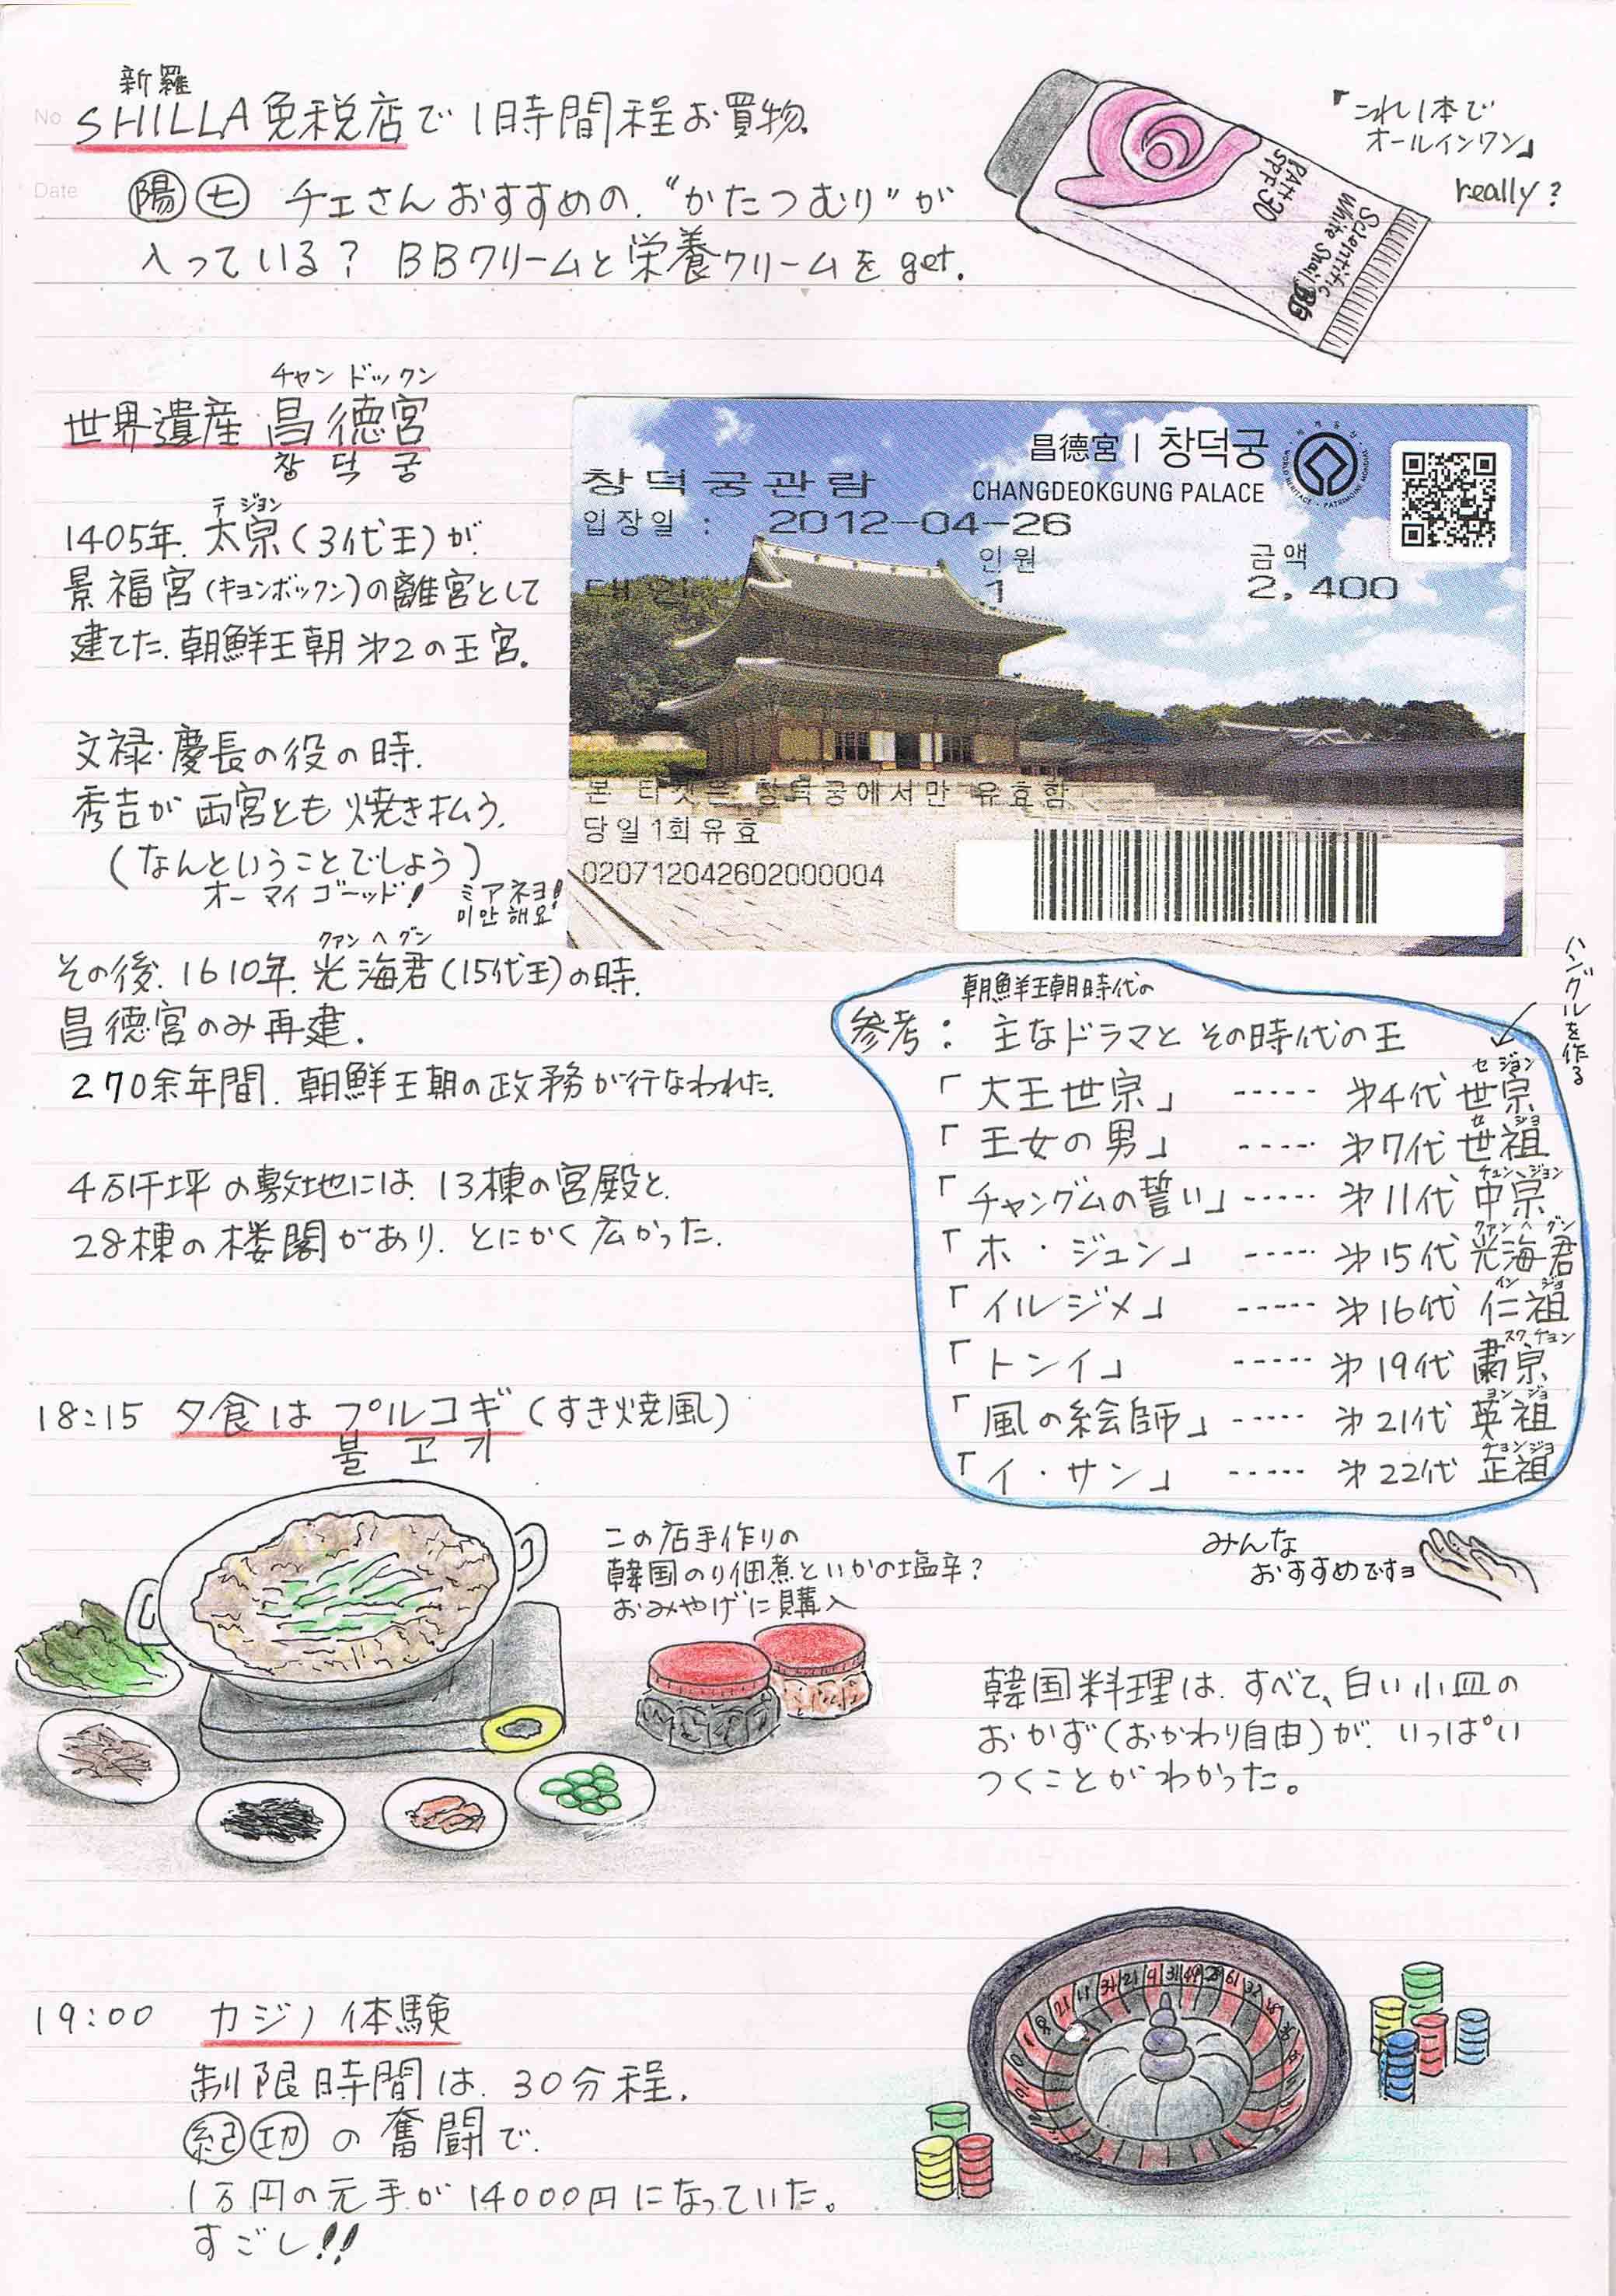 No
Date
新羅
SHILLA 免税店で 1時間程お買物.
陽 七 チェさんおすすめの. "かたつむり"が
入っている? BBクリームと栄養クリームを get.
『これ1本で
オールインワン』
really?
SPF30
Scientific
White Snail
BB
チャンドックン
世界遺産 昌徳宮
창덕궁
テジョン
1405年. 太宗(3代王)が.
景福宮(キョンボックン)の離宮として
建てた. 朝鮮王朝 第2の王宮.
文禄・慶長の役の時.
秀吉が両宮とも焼き払う.
(なんということでしょう)
オーマイゴーッド! ミアネヨ!
미안해요
クァンヘグン
その後. 1610年. 光海君(15代王)の時.
昌徳宮のみ再建.
270余年間. 朝鮮王朝の政務が行なわれた.
4万千坪の敷地には. 13棟の宮殿と.
28棟の楼閣があり. とにかく広かった.
昌德宮 | 창덕궁
CHANGDEOKGUNG PALACE
WORLD HERITAGE • PATRIMOINE MONDIAL
창덕궁관람
입장일 : 2012-04-26
인원 금액
대인 1 2,400
본 티켓은 창덕궁에서만 유효함
당일1회유효
020712042602000004
ハングルを作る
朝鮮王朝時代の
参考: 主なドラマと その時代の王
セジョン
「大王世宗」 ----- 第4代 世宗
セジョ
「王女の男」 ----- 第7代 世祖
チュンジョン
「チャングムの誓い」 ----- 第11代 中宗
クァンヘグン
「ホ・ジュン」 ----- 第15代 光海君
インジョ
「イルジメ」 ----- 第16代 仁祖
スクチョン
「トンイ」 ----- 第19代 粛宗
ヨンジョ
「風の絵師」 ----- 第21代 英祖
チョンジョ
「イ・サン」 ----- 第22代 正祖
みんな
おすすめですヨ
18:15 夕食は プルコギ (すき焼風)
불고기
この店手作りの
韓国のり佃煮といかの塩辛?
おみやげに購入
韓国料理は. すべて、白い小皿の
おかず(おかわり自由)が. いっぱい
つくことがわかった。
19:00 カジノ体験
制限時間は. 30分程.
紀 功 の奮闘で.
1万円の元手が14000円になっていた。
すごし!!